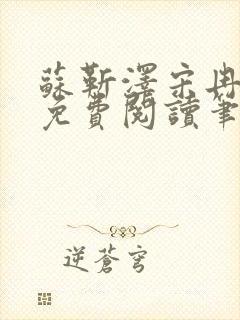 蘇靳澤宋冉
免費閱讀筆
逆蒼穹